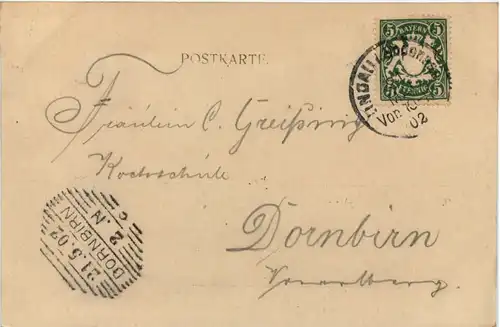 POSTKARTE.
5 BAYERN 5
5 PFENNIG 5
LINDAU (Bodensee)
Vor
02
Fräulein C. Greißing
Kochschule
Dornbirn
Vorarlberg.
DORNBIRN
21.5.02
N